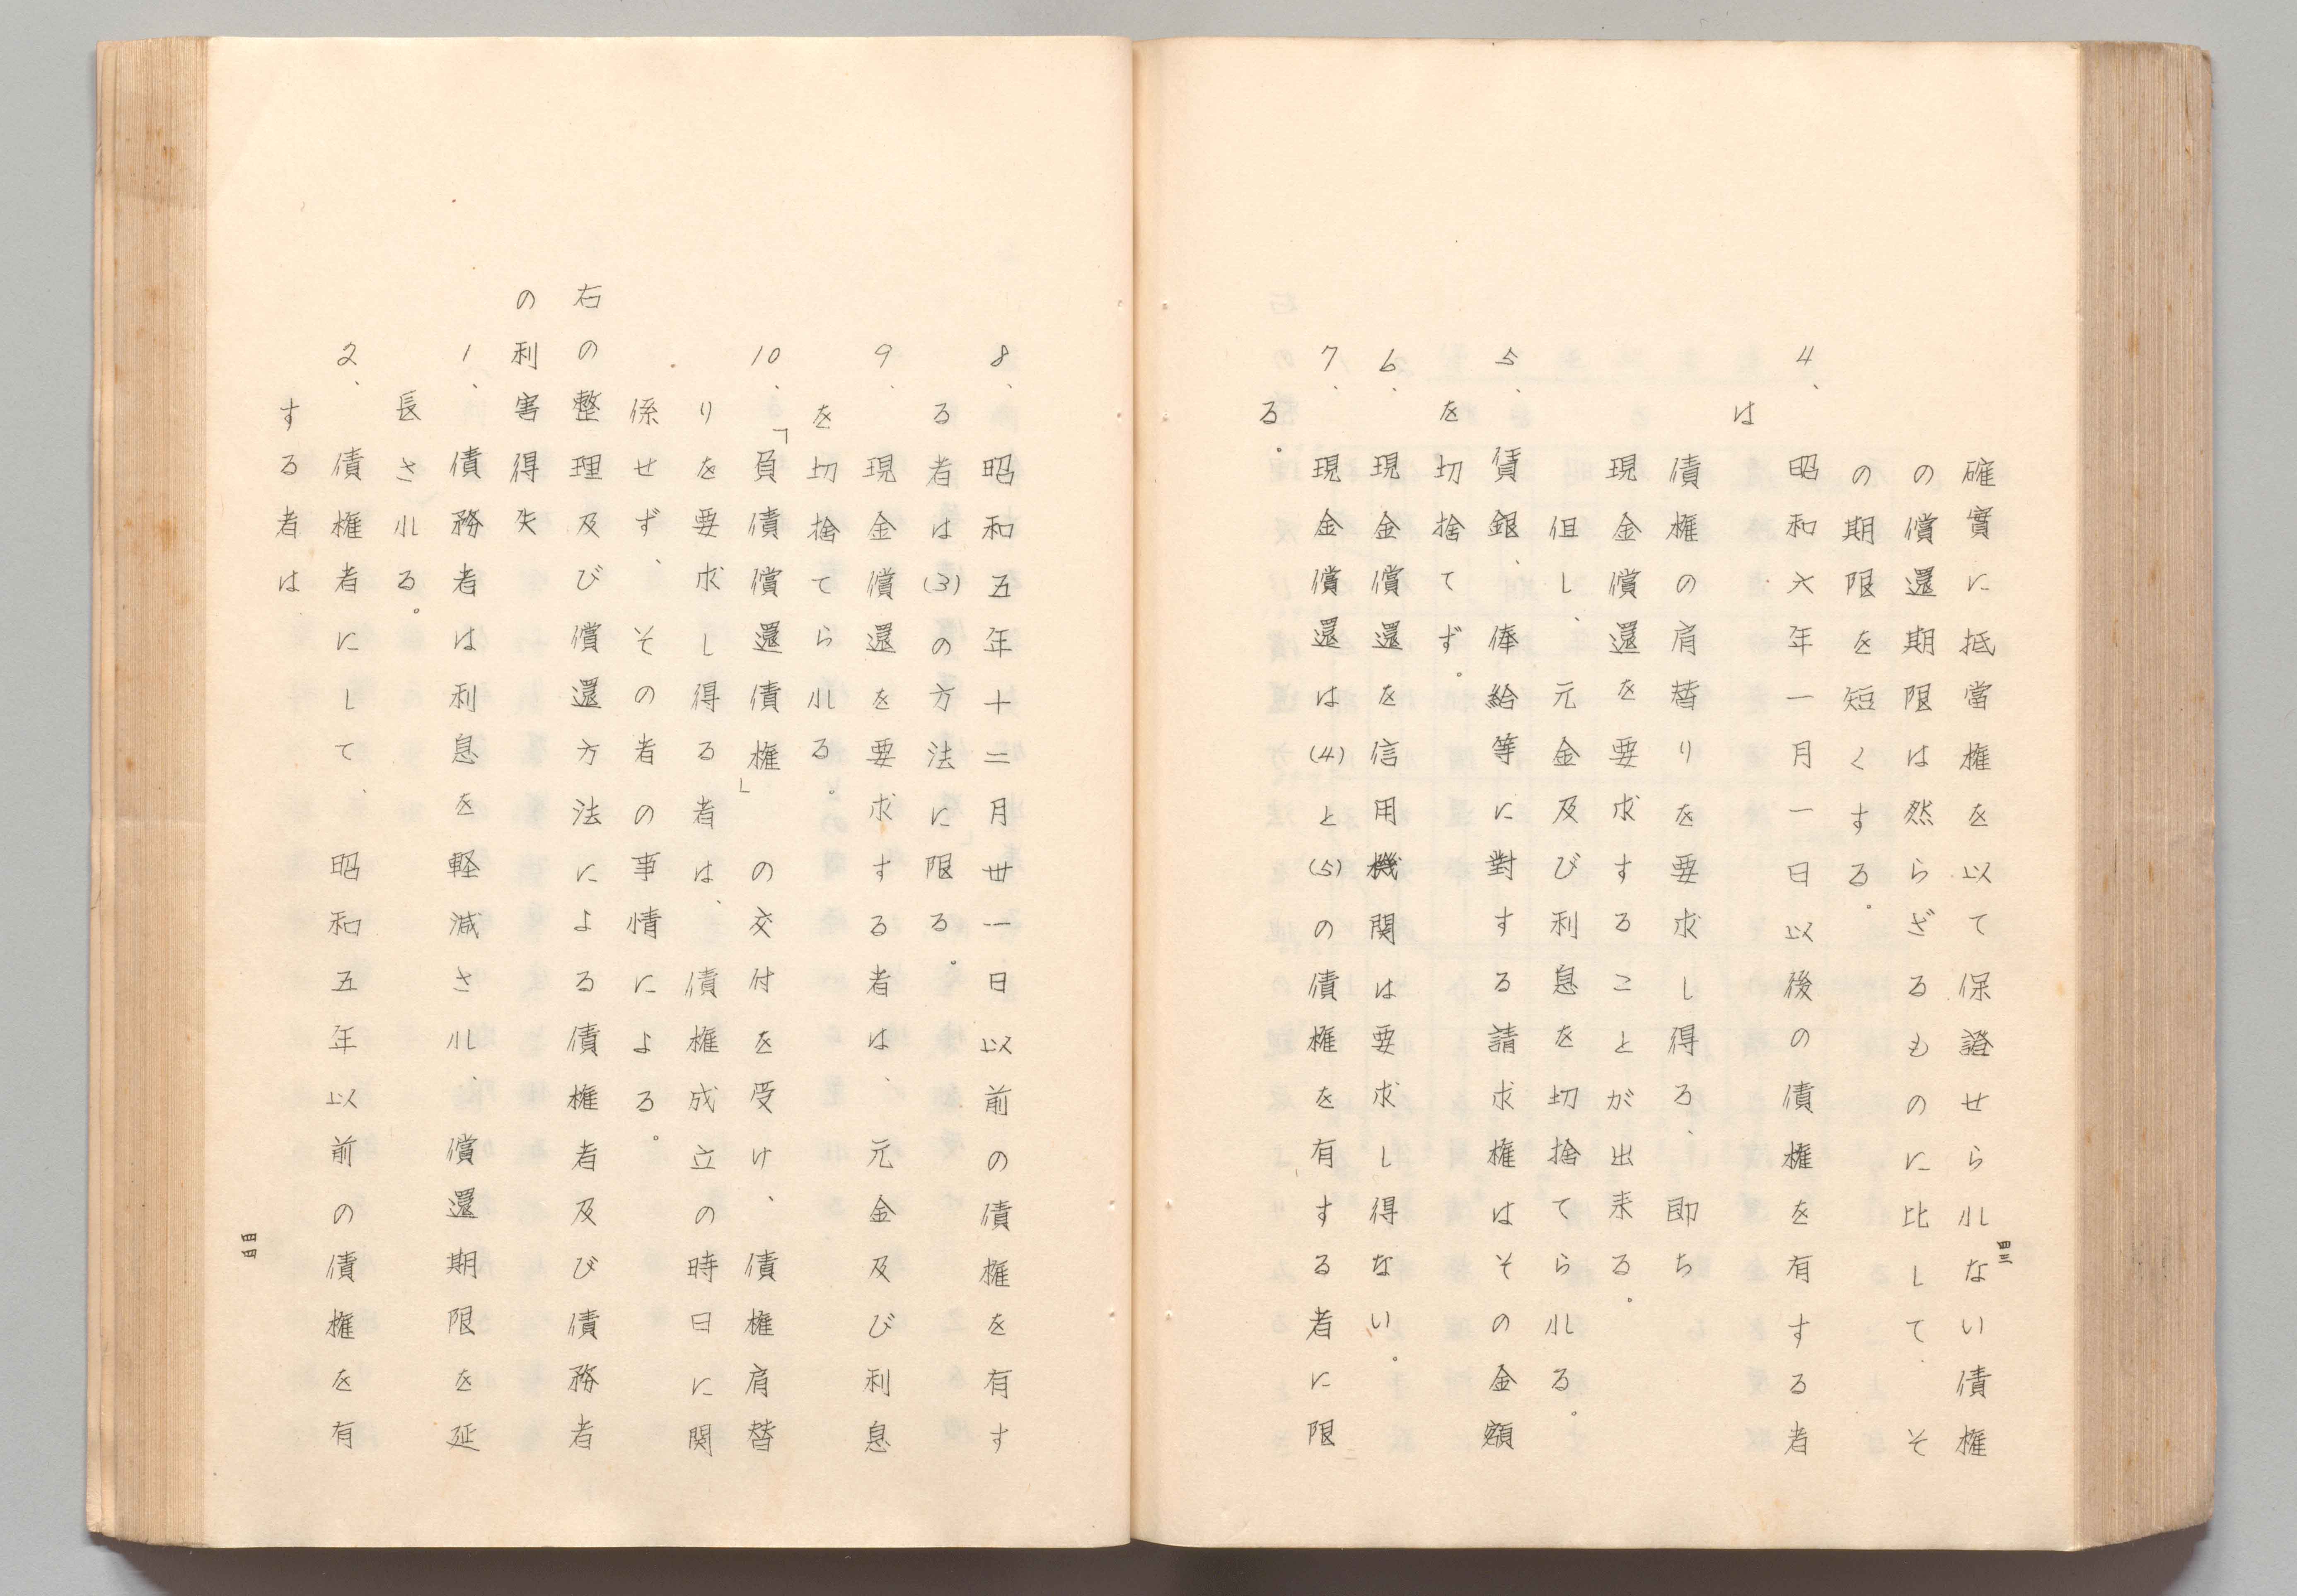 確實に抵當権を以て保證せられない債権
の償還期限は然らざるものに比して、そ
の期限を短くする。
4、昭和六年一月一日以後の債権を有する者
は
債権の肩替りを要求し得る、即ち
現金償還を要求することが出来る。
但し、元金及び利息を切捨てられる。
5、賃銀、俸給等に對する請求権はその金額
を切捨てず。
6、現金償還を信用機関は要求し得ない。
7、現金償還は(4)と(5)の債権を有する者に限
る。
四三
8、昭和五年十二月卅一日以前の債権を有す
る者は(3)の方法に限る。
9、現金償還を要求する者は、元金及び利息
を切捨てられる。
10、「負債償還債権」の交付を受け、債権肩替
りを要求し得る者は、債権成立の時日に関
係せず、その者の事情による。
右の整理及び償還方法による債権者及び債務者
の利害得失
1、債務者は利息を軽減され、償還期限を延
長される。
2、債権者にして、昭和五年以前の債権を有
する者は
四四